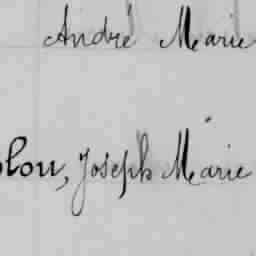 André Marie
lou, Joseph Marie